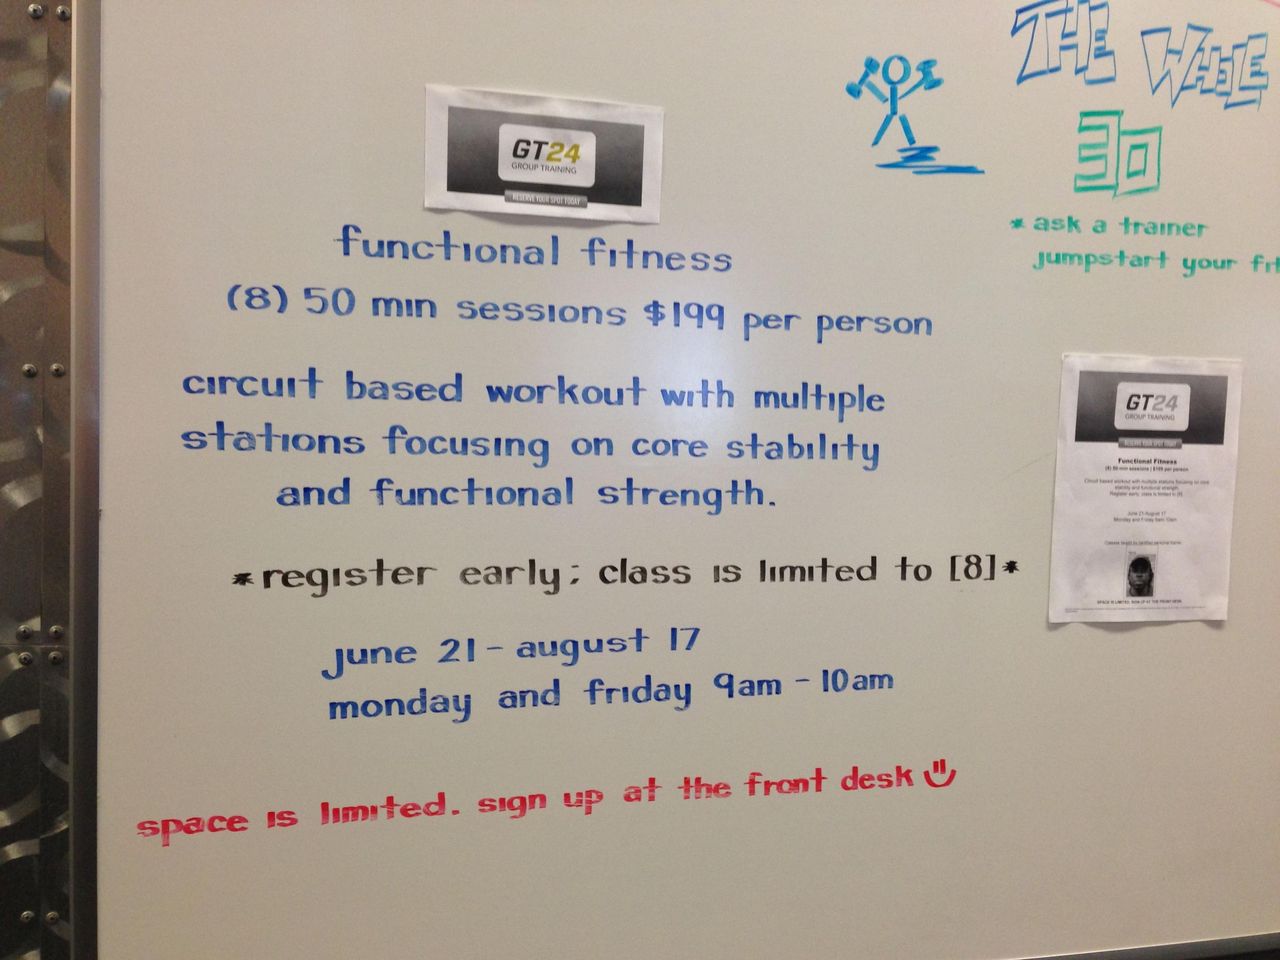 GT24
GROUP TRAINING
RESERVE YOUR SPOT TODAY
functional fitness
(8) 50 min sessions $199 per person
circuit based workout with multiple
stations focusing on core stability
and functional strength.
*register early; class is limited to [8]*
june 21 - august 17
monday and friday 9am - 10am
space is limited. sign up at the front desk
THE WHOLE
30
* ask a trainer
jumpstart your fit
GT24
GROUP TRAINING
RESERVE YOUR SPOT TODAY
Functional Fitness
(8) 50-min sessions | $199 per person
Circuit based workout with multiple stations focusing on core
stability and functional strength.
Register early, class is limited to [8].
June 21-August 17
Monday and Friday 9am-10am
SPACE IS LIMITED. SIGN UP AT THE FRONT DESK.